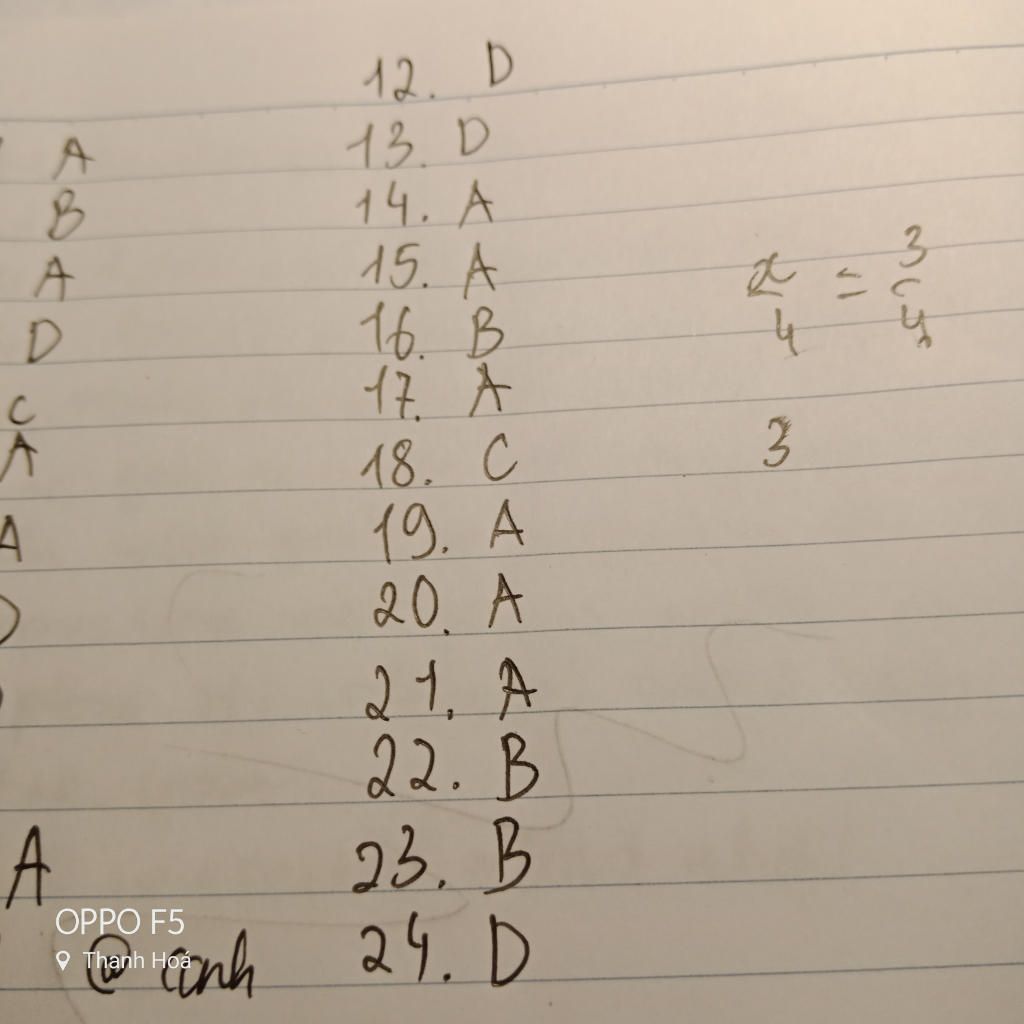 A
B
A
D
C
A
A
D
A
@ anh
12. D
13. D
14. A
15. A
16. B
17. A
18. C
19. A
20. A
21. A
22. B
23. B
24. D
x/4 = 3/4
3
OPPO F5
Thanh Hoá